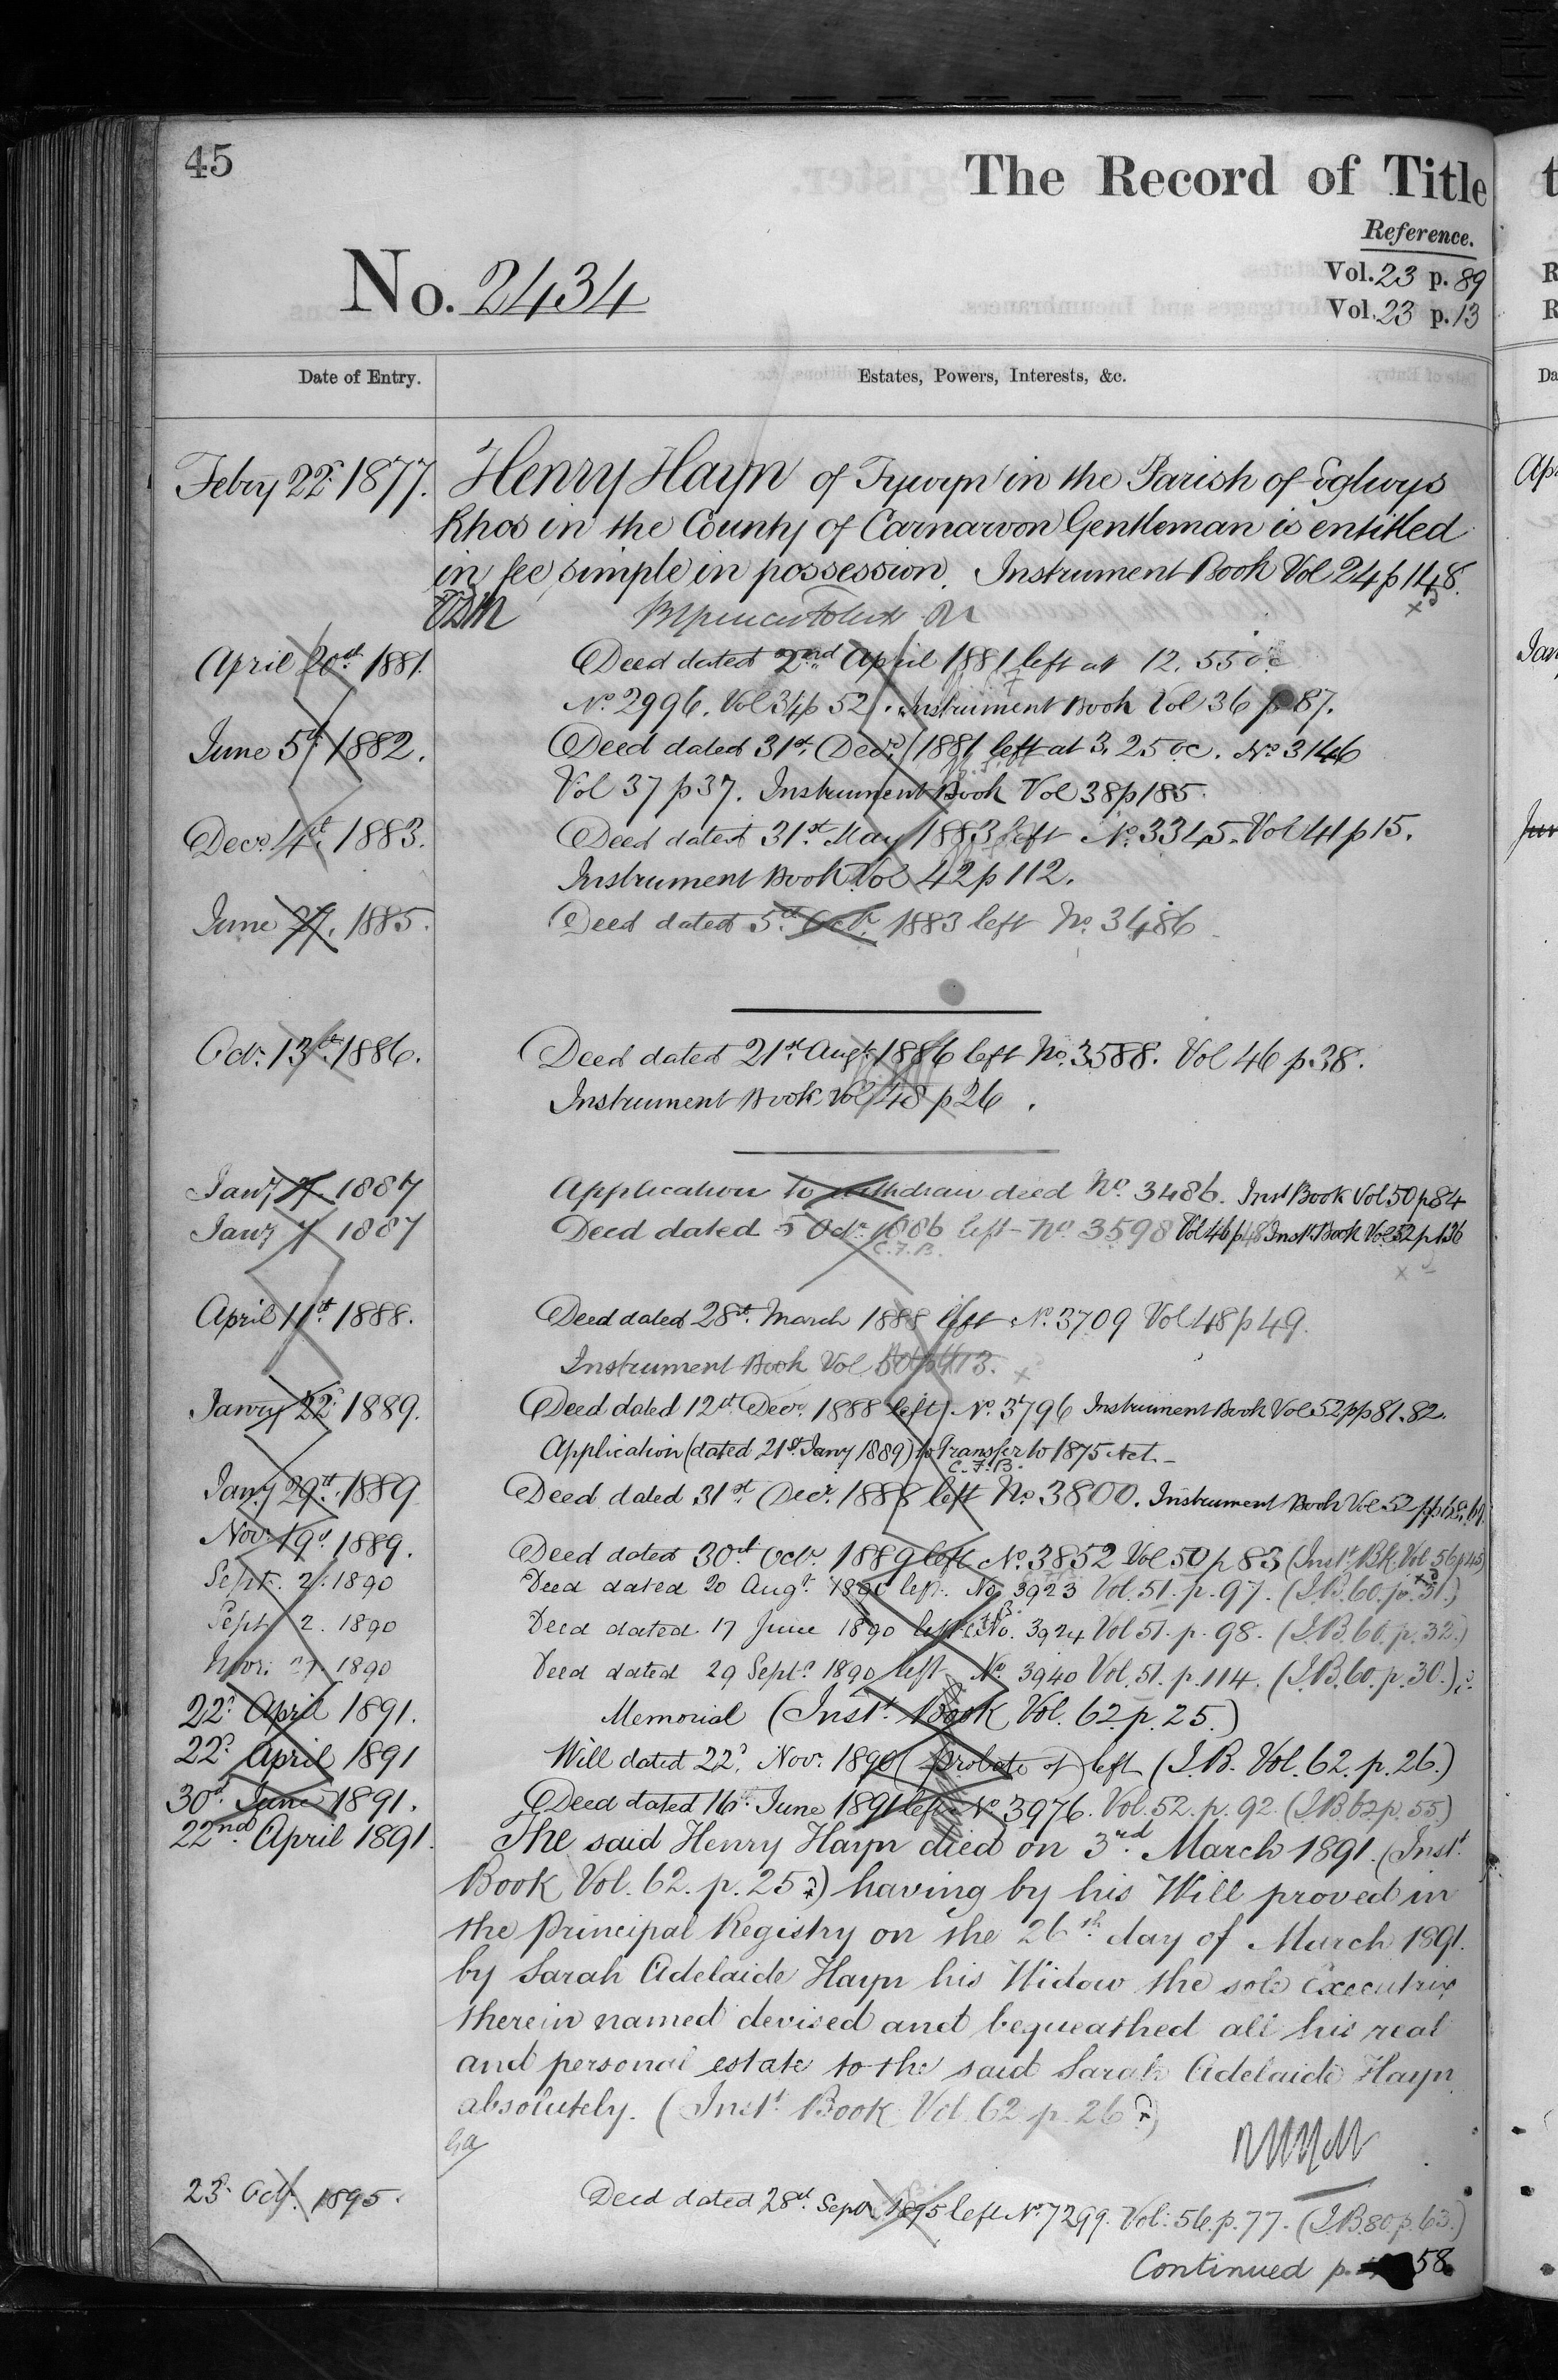 45
The Record of Title
Reference.
No. 2434
Vol. 23 p. 89
Vol. 23 p. 13
Date of Entry.
Estates, Powers, Interests, &c.
Febry 22d. 1877. Henry Hayn of Tywyn in the Parish of Eglwys
Rhos in the County of Carnarvon Gentleman is entitled
in fee simple in possession. Instrument Book Vol 24 p 148.
April 20th. 1881. Deed dated 2nd April 1881 left at 12. 55 oc
No. 2996. Vol 34 p 52. Instrument Book Vol 36 p 87.
June 5th. 1882. Deed dated 31st. Decr. 1881 left at 3. 25 oc. No. 3146
Vol 37 p 37. Instrument Book Vol 38 p 185.
Decr. 4th. 1883. Deed dated 31st. May 1883 left No. 3345. Vol 41 p 15.
Instrument Book Vol 42 p 112.
June 27. 1885. Deed dated 5th Octr. 1883 left No. 3486
Octr. 13th. 1886. Deed dated 21st. Augt. 1886 left No. 3588. Vol 46 p 38.
Instrument Book Vol 48 p 26.
Jany 7. 1887 Application to withdraw deed No. 3486. Inst Book Vol 50 p 84
Jany 7 1887 Deed dated 5 Octr. 1886 left - No. 3598 Vol 46 p 48 Inst. Book Vol 52 p 136
C.F.B.
April 11th. 1888. Deed dated 28th. March 1888 left No. 3709 Vol 48 p 49.
Instrument Book Vol 50 p 113.
Janry 22d. 1889. Deed dated 12th Decr. 1888 left No. 3796 Instrument Book Vol 52 pp 81. 82.
Application (dated 21st. Jany 1889) to Transfer to 1875 Act.
C.F.B.
Jany 29th. 1889 Deed dated 31st Decr. 1888 left No. 3800. Instrument Book Vol 52 pp 68.
Novr. 19th. 1889. Deed dated 30th Octr. 1889 left No. 3852 Vol 50 p 83 (Inst. Bk. Vol 56 p 45)
Sept. 2. 1890 Deed dated 20 Augt. 1890 left. No. 3923 Vol. 51. p. 97. (I.B. 60. p. 31.)
Sept. 2. 1890 Deed dated 17 June 1890 left No. 3924 Vol 51. p. 98. (I.B. 60. p. 32.)
Novr. 1890 Deed dated 29 Septr. 1890 left No. 3940 Vol. 51. p. 114. (I.B. 60. p. 30.)
22d. April 1891. Memorial (Inst. Book Vol. 62. p. 25.)
22d. April 1891 Will dated 22d. Novr. 1890 (probate of) left (I.B. Vol. 62. p. 26.)
30th. June 1891. Deed dated 16th. June 1891 left No. 3976. Vol. 52. p. 92. (I.B. 62 p. 55)
22nd. April 1891. The said Henry Hayn died on 3rd. March 1891. (Inst.
Book Vol. 62. p. 25) having by his Will proved in
the Principal Registry on the 26th. day of March 1891.
by Sarah Adelaide Hayn his Widow the sole Executrix
therein named devised and bequeathed all his real
and personal estate to the said Sarah Adelaide Hayn
absolutely. (Inst. Book Vol. 62 p. 26)
23d. Octr. 1895. Deed dated 28th. Septr. 1895 left No. 7299. Vol: 56. p. 77. (I.B. 80 p. 63.)
Continued p. 58